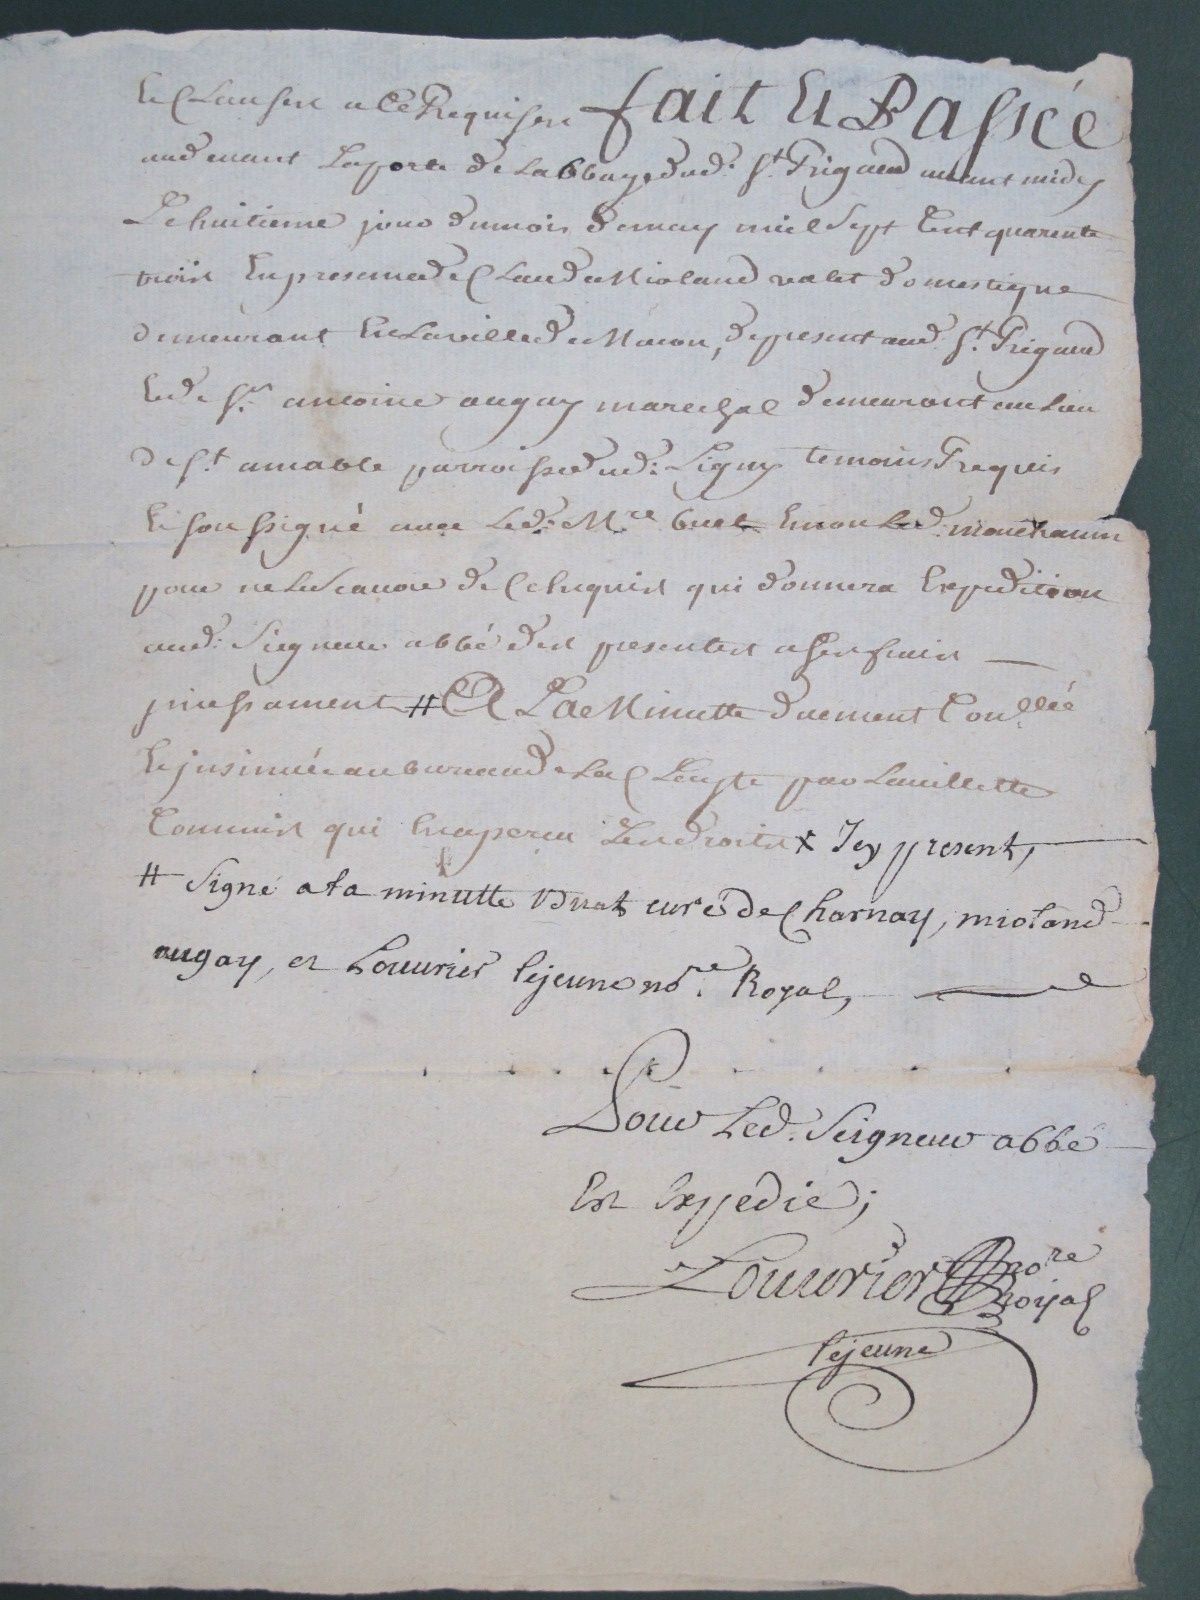 Et Clauses a Ce Requises fait Et Passée
audevant La porte de Labbaye dud. St. Rigaud avant midy
Le huitieme jour du mois de may mil Sept Cent quarente
trois En presence de Claude Mioland valet domestique
demeurant En La ville de Macon, de present aud. St. Rigaud
Et de Sr. antoine augay marechal demeurant au Lieu
de St. amable parroisse dud. Ligny temoins Requis
Et soussigné avec Led. Mre. buat Et non Led.
pour ne Le Scavoir de Ce Enquis qui donnera Expedition
aud. Seigneur abbé des presentes a ses frais
# Et La Minutte duement Con.llée
Et jnsinuée au bureau de La Clayte par Lavillette
Commis qui En a perçu Les droits x Jcy present,
# Signé a la minutte Buat curé de Charnay, mioland
augay, et Louvrier lejeune nore. Royal,
Pour Led. Seigneur abbé
Est Expedié;
Louvrier nore
Royal
lejeune